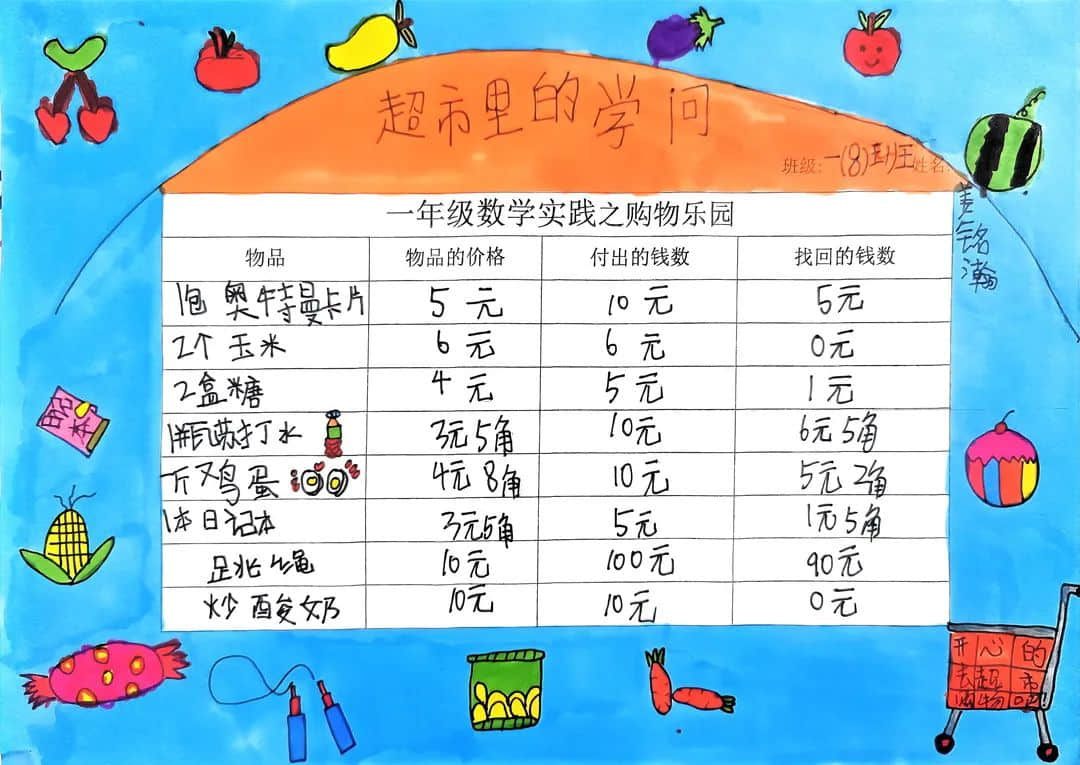 超市里的学问
班级:一(8)班 姓名:
铭瀚
一年级数学实践之购物乐园
物品 物品的价格 付出的钱数 找回的钱数
1包 奥特曼卡片 5元 10元 5元
2个 玉米 6元 6元 0元
2盒糖 4元 5元 1元
1瓶苏打水 3元5角 10元 6元5角
鸡蛋 4元8角 10元 5元2角
1本日记本 3元5角 5元 1元5角
跳绳 10元 100元 90元
炒酸奶 10元 10元 0元
日记本
开心的
去超市
购物吧